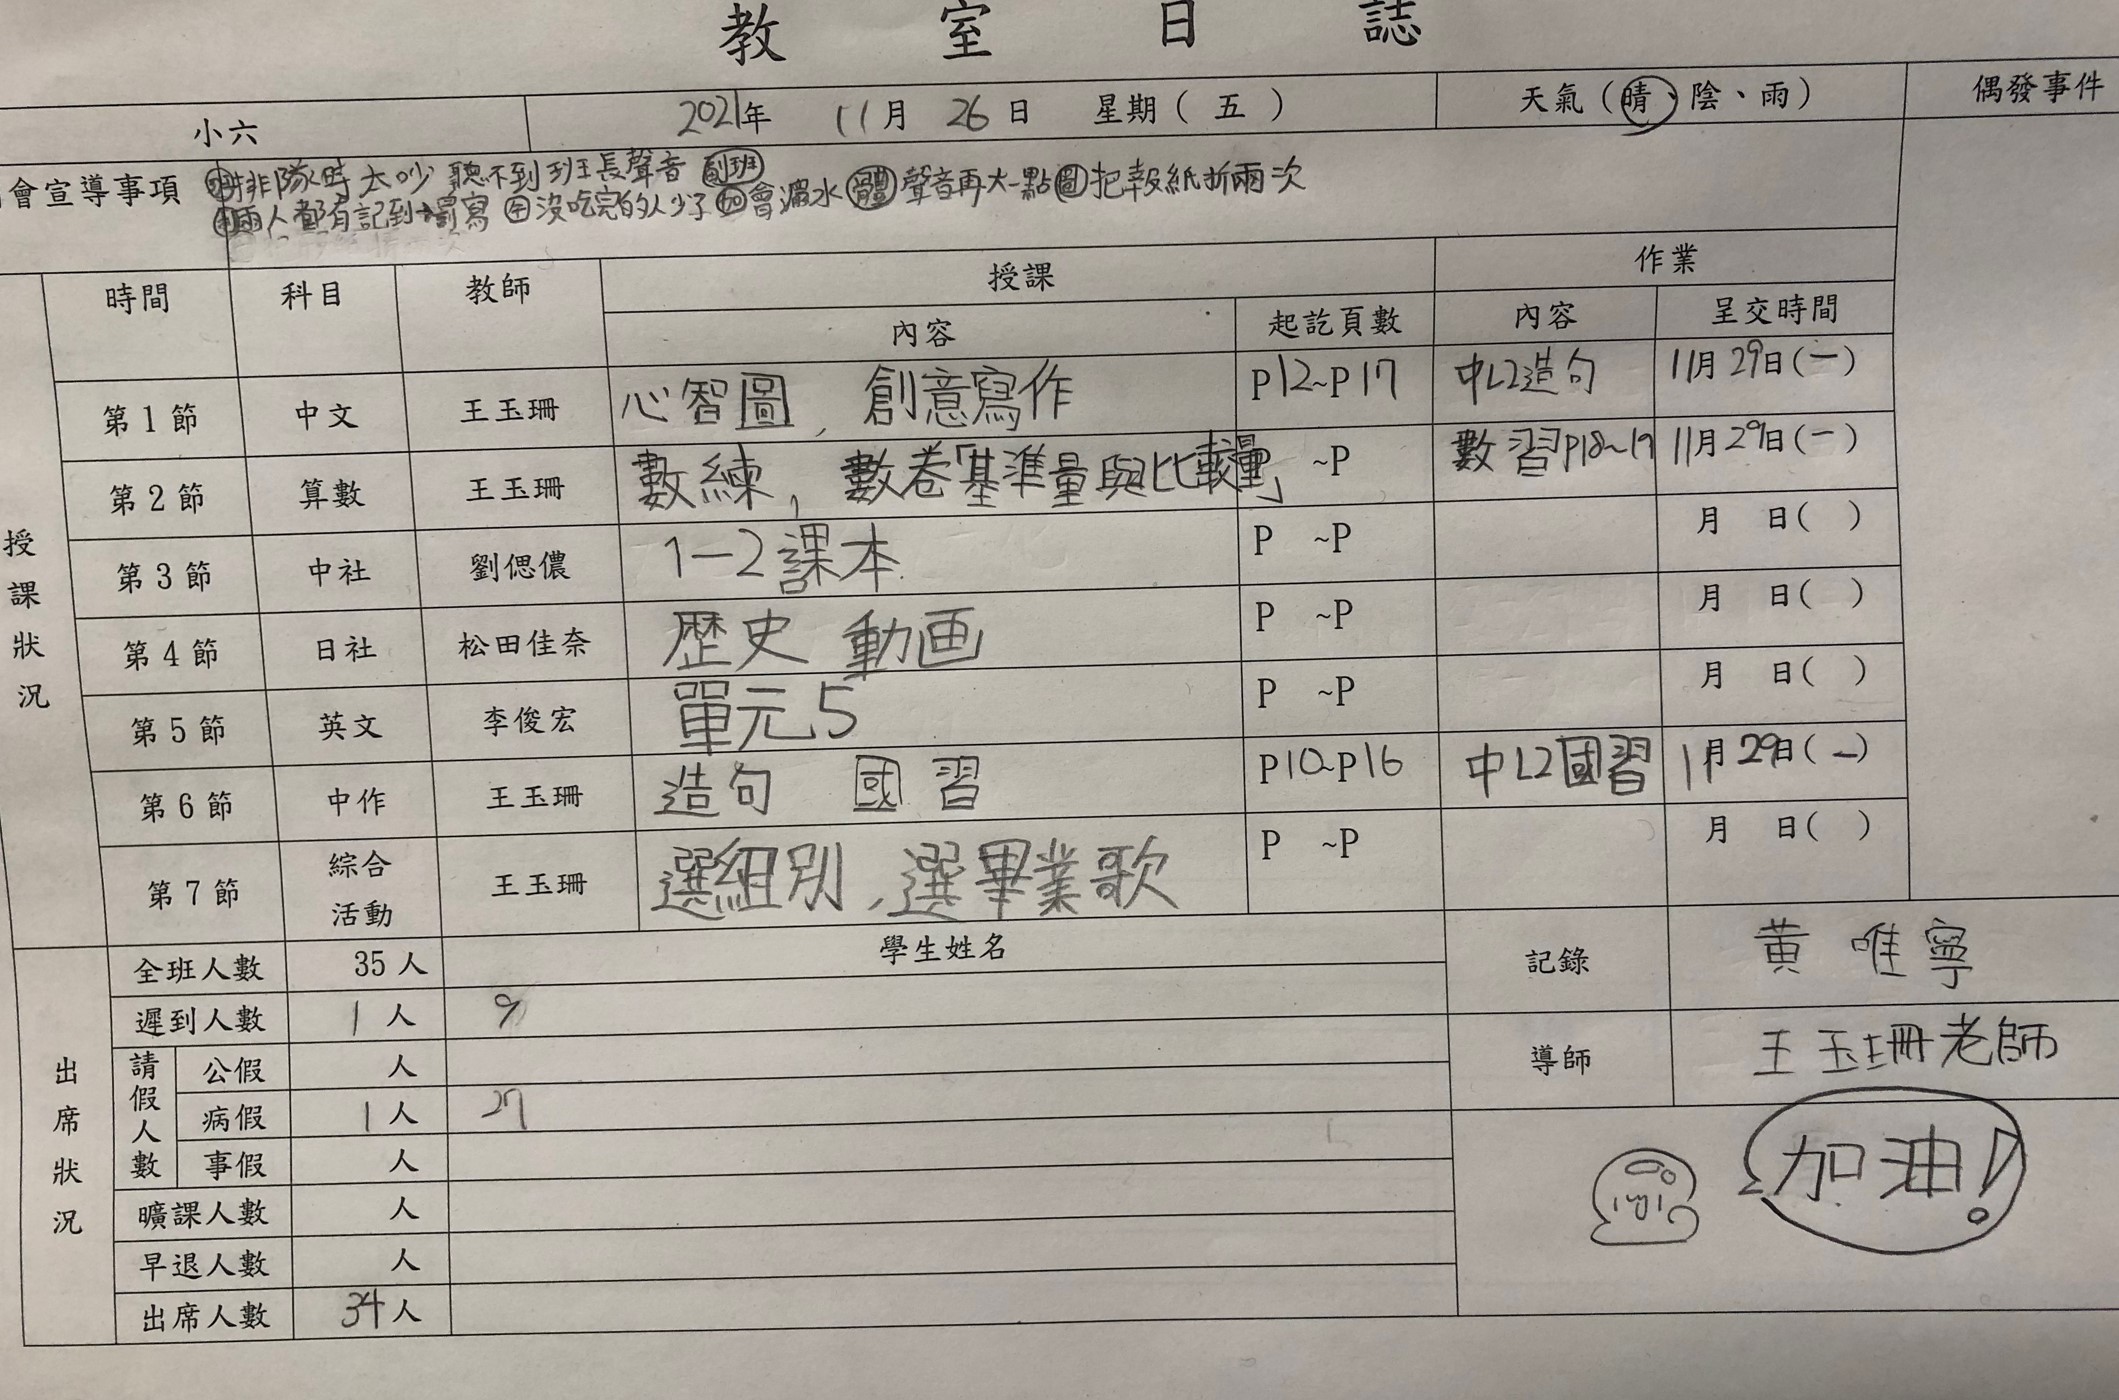 教室日誌
小六 2021年 11月 26日 星期(五) 天氣(晴、陰、雨) 偶發事件
會宣導事項 排隊時太吵 聽不到班長聲音 副班
兩人都有記到→罰寫 午 沒吃完的人少了 加 會灑水 體 聲音再大一點 圖 把報紙折兩次
授課狀況 時間 科目 教師 授課 作業
內容 起訖頁數 內容 呈交時間
第1節 中文 王玉珊 心智圖, 創意寫作 P12~P17 中L2造句 11月29日(一)
第2節 算數 王玉珊 數練, 數卷「基準量與比較量」 ~P 數習P18~19 11月29日(一)
第3節 中社 劉偲儂 1-2課本 P ~P 月 日( )
第4節 日社 松田佳奈 歴史 動画 P ~P 月 日( )
第5節 英文 李俊宏 單元5 P ~P 月 日( )
第6節 中作 王玉珊 造句 國習 P10~P16 中L2國習 11月29日(一)
第7節 綜合活動 王玉珊 選組別, 選畢業歌 P ~P 月 日( )
出席狀況 全班人數 35人 學生姓名 記錄 黃唯寧
遲到人數 1人 9
請假人數 公假 人 導師 王玉珊老師
病假 1人 27
事假 人
曠課人數 人 加油!
早退人數 人
出席人數 34人